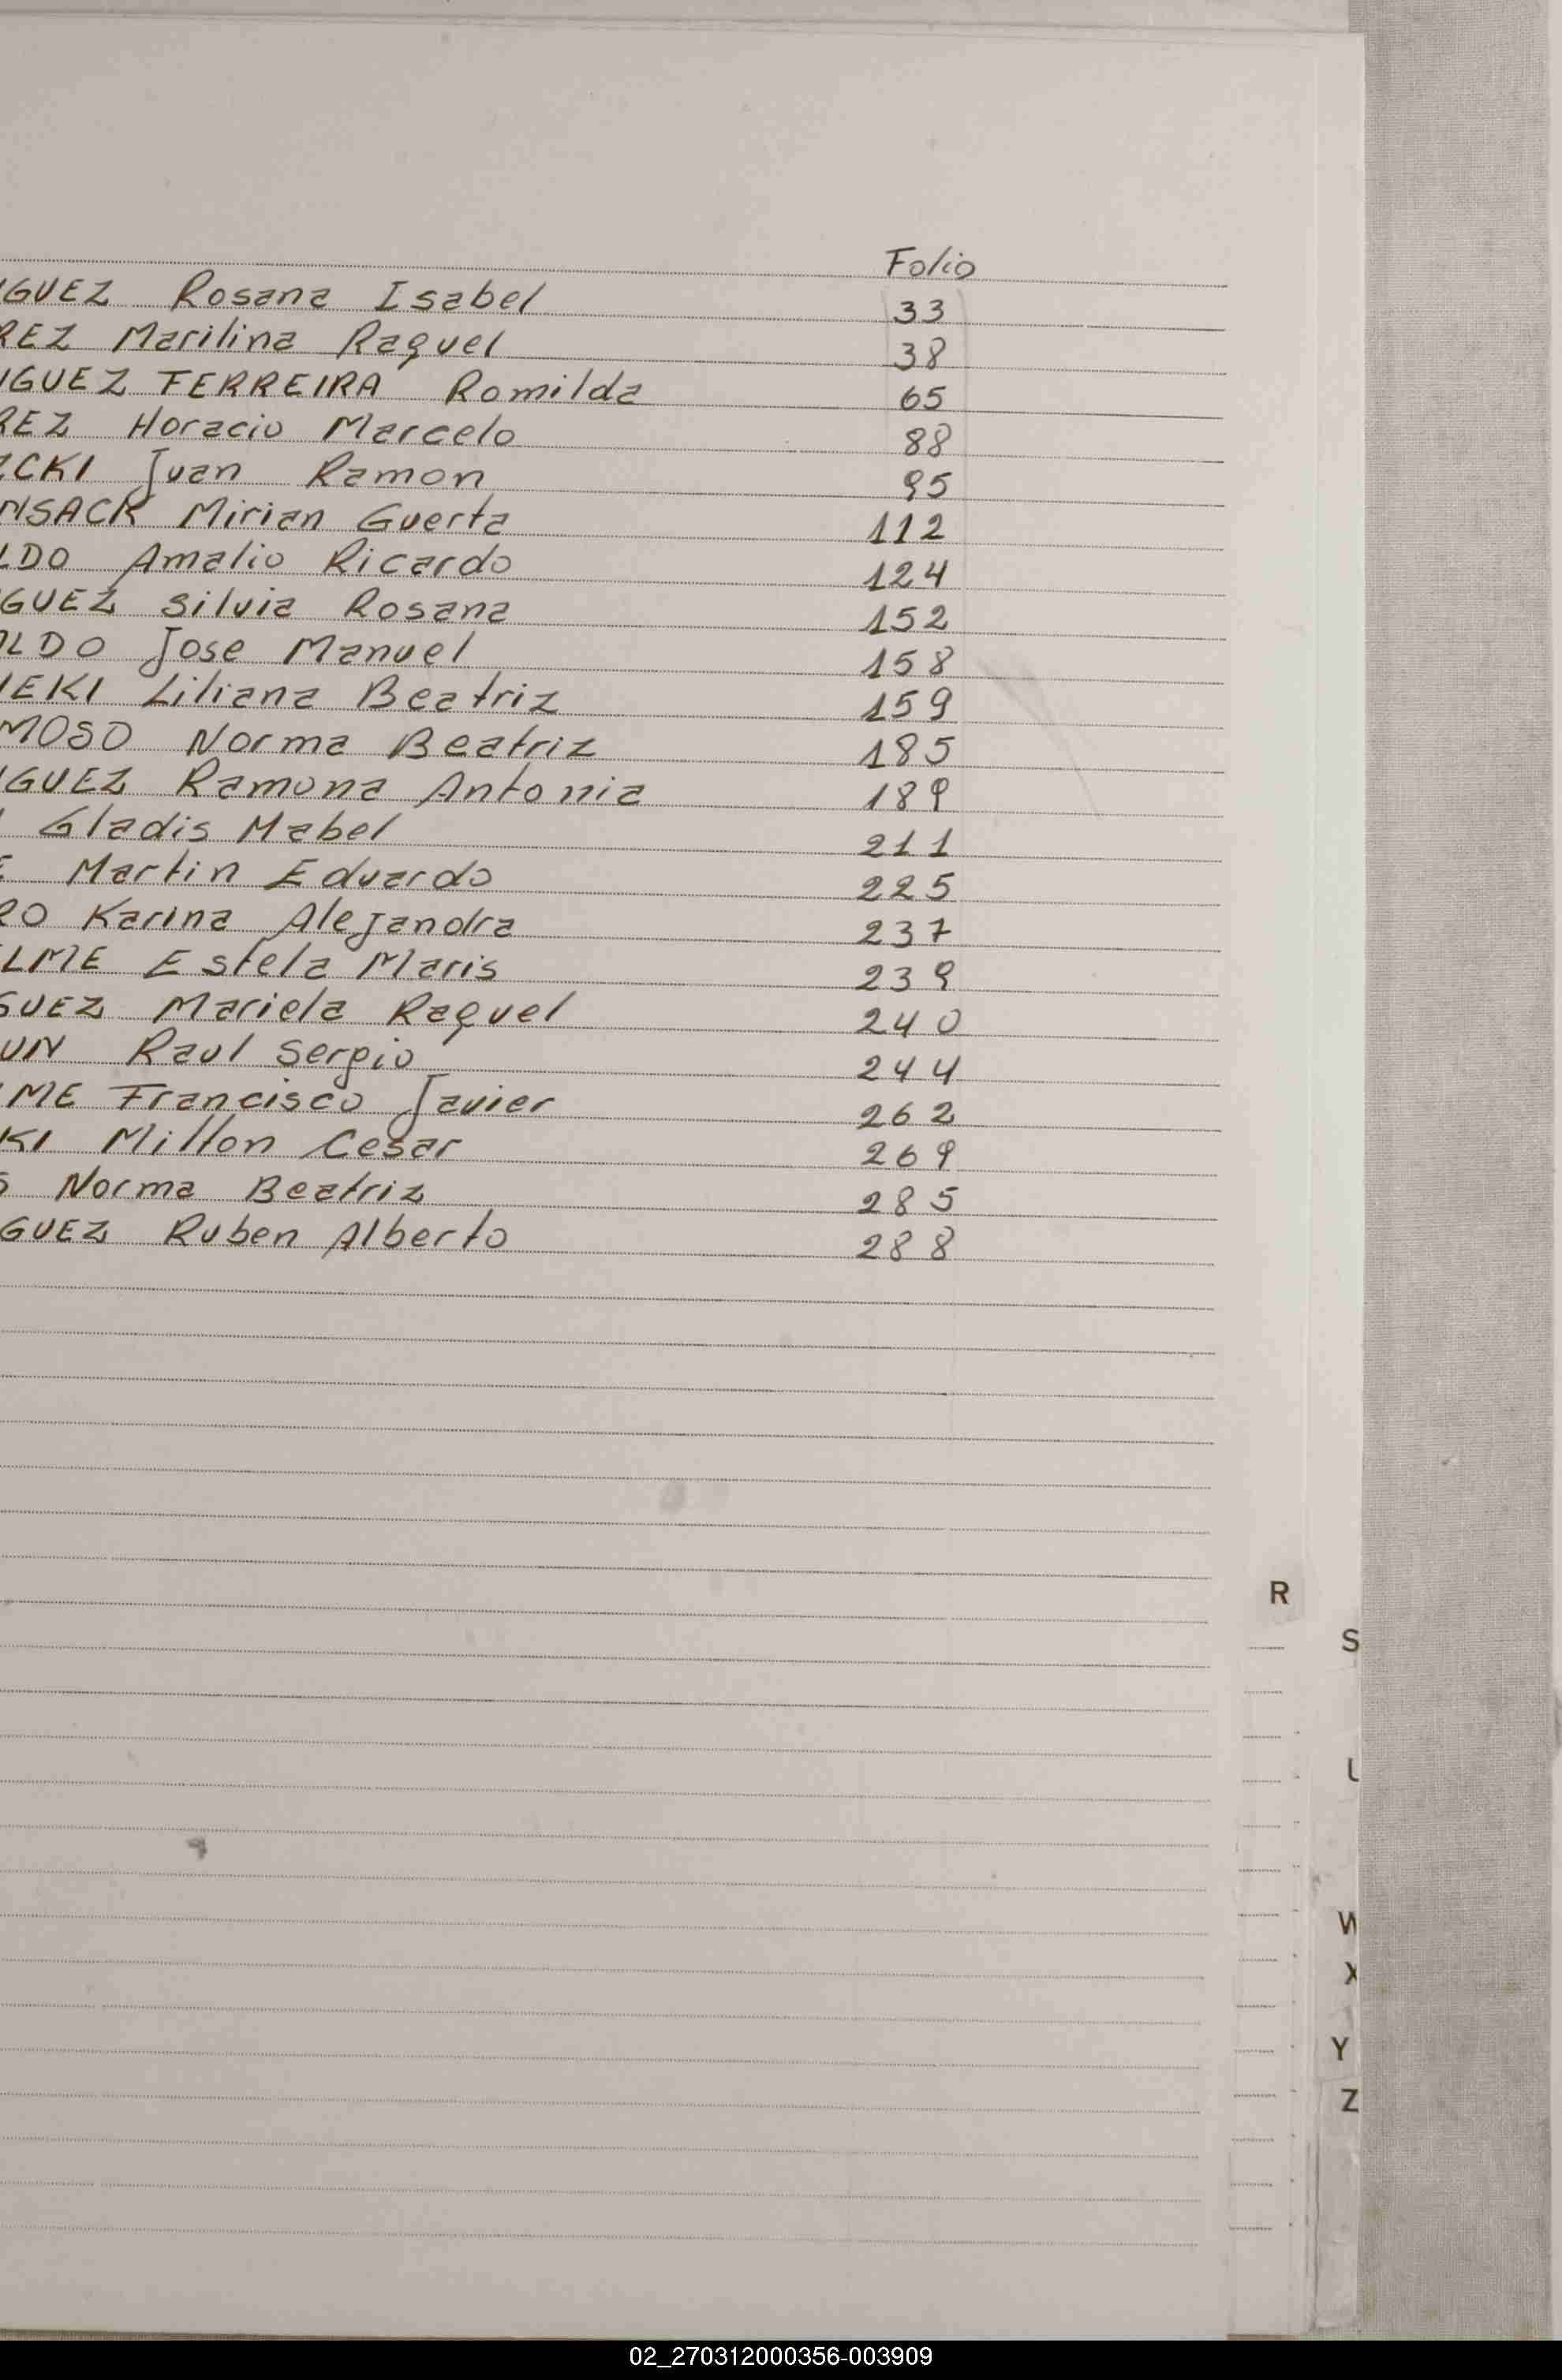 Folio
IGUEZ Rosana Isabel 33
REZ Marilina Raquel 38
IGUEZ FERREIRA Romilda 65
REZ Horacio Marcelo 88
CKI Juan Ramon 95
NSACK Mirian Guerta 112
LDO Amalio Ricardo 124
GUEZ Silvia Rosana 152
LDO Jose Manuel 158
IEKI Liliana Beatriz 159
MOSO Norma Beatriz 185
IGUEZ Ramona Antonia 189
Gladis Mabel 211
Martin Eduardo 225
RO Karina Alejandra 237
LME Estela Maris 239
GUEZ Mariela Raquel 240
UN Raul Sergio 244
ME Francisco Javier 262
KI Milton Cesar 269
Norma Beatriz 285
GUEZ Ruben Alberto 288
R
S
U
W
X
Y
Z
02_270312000356-003909